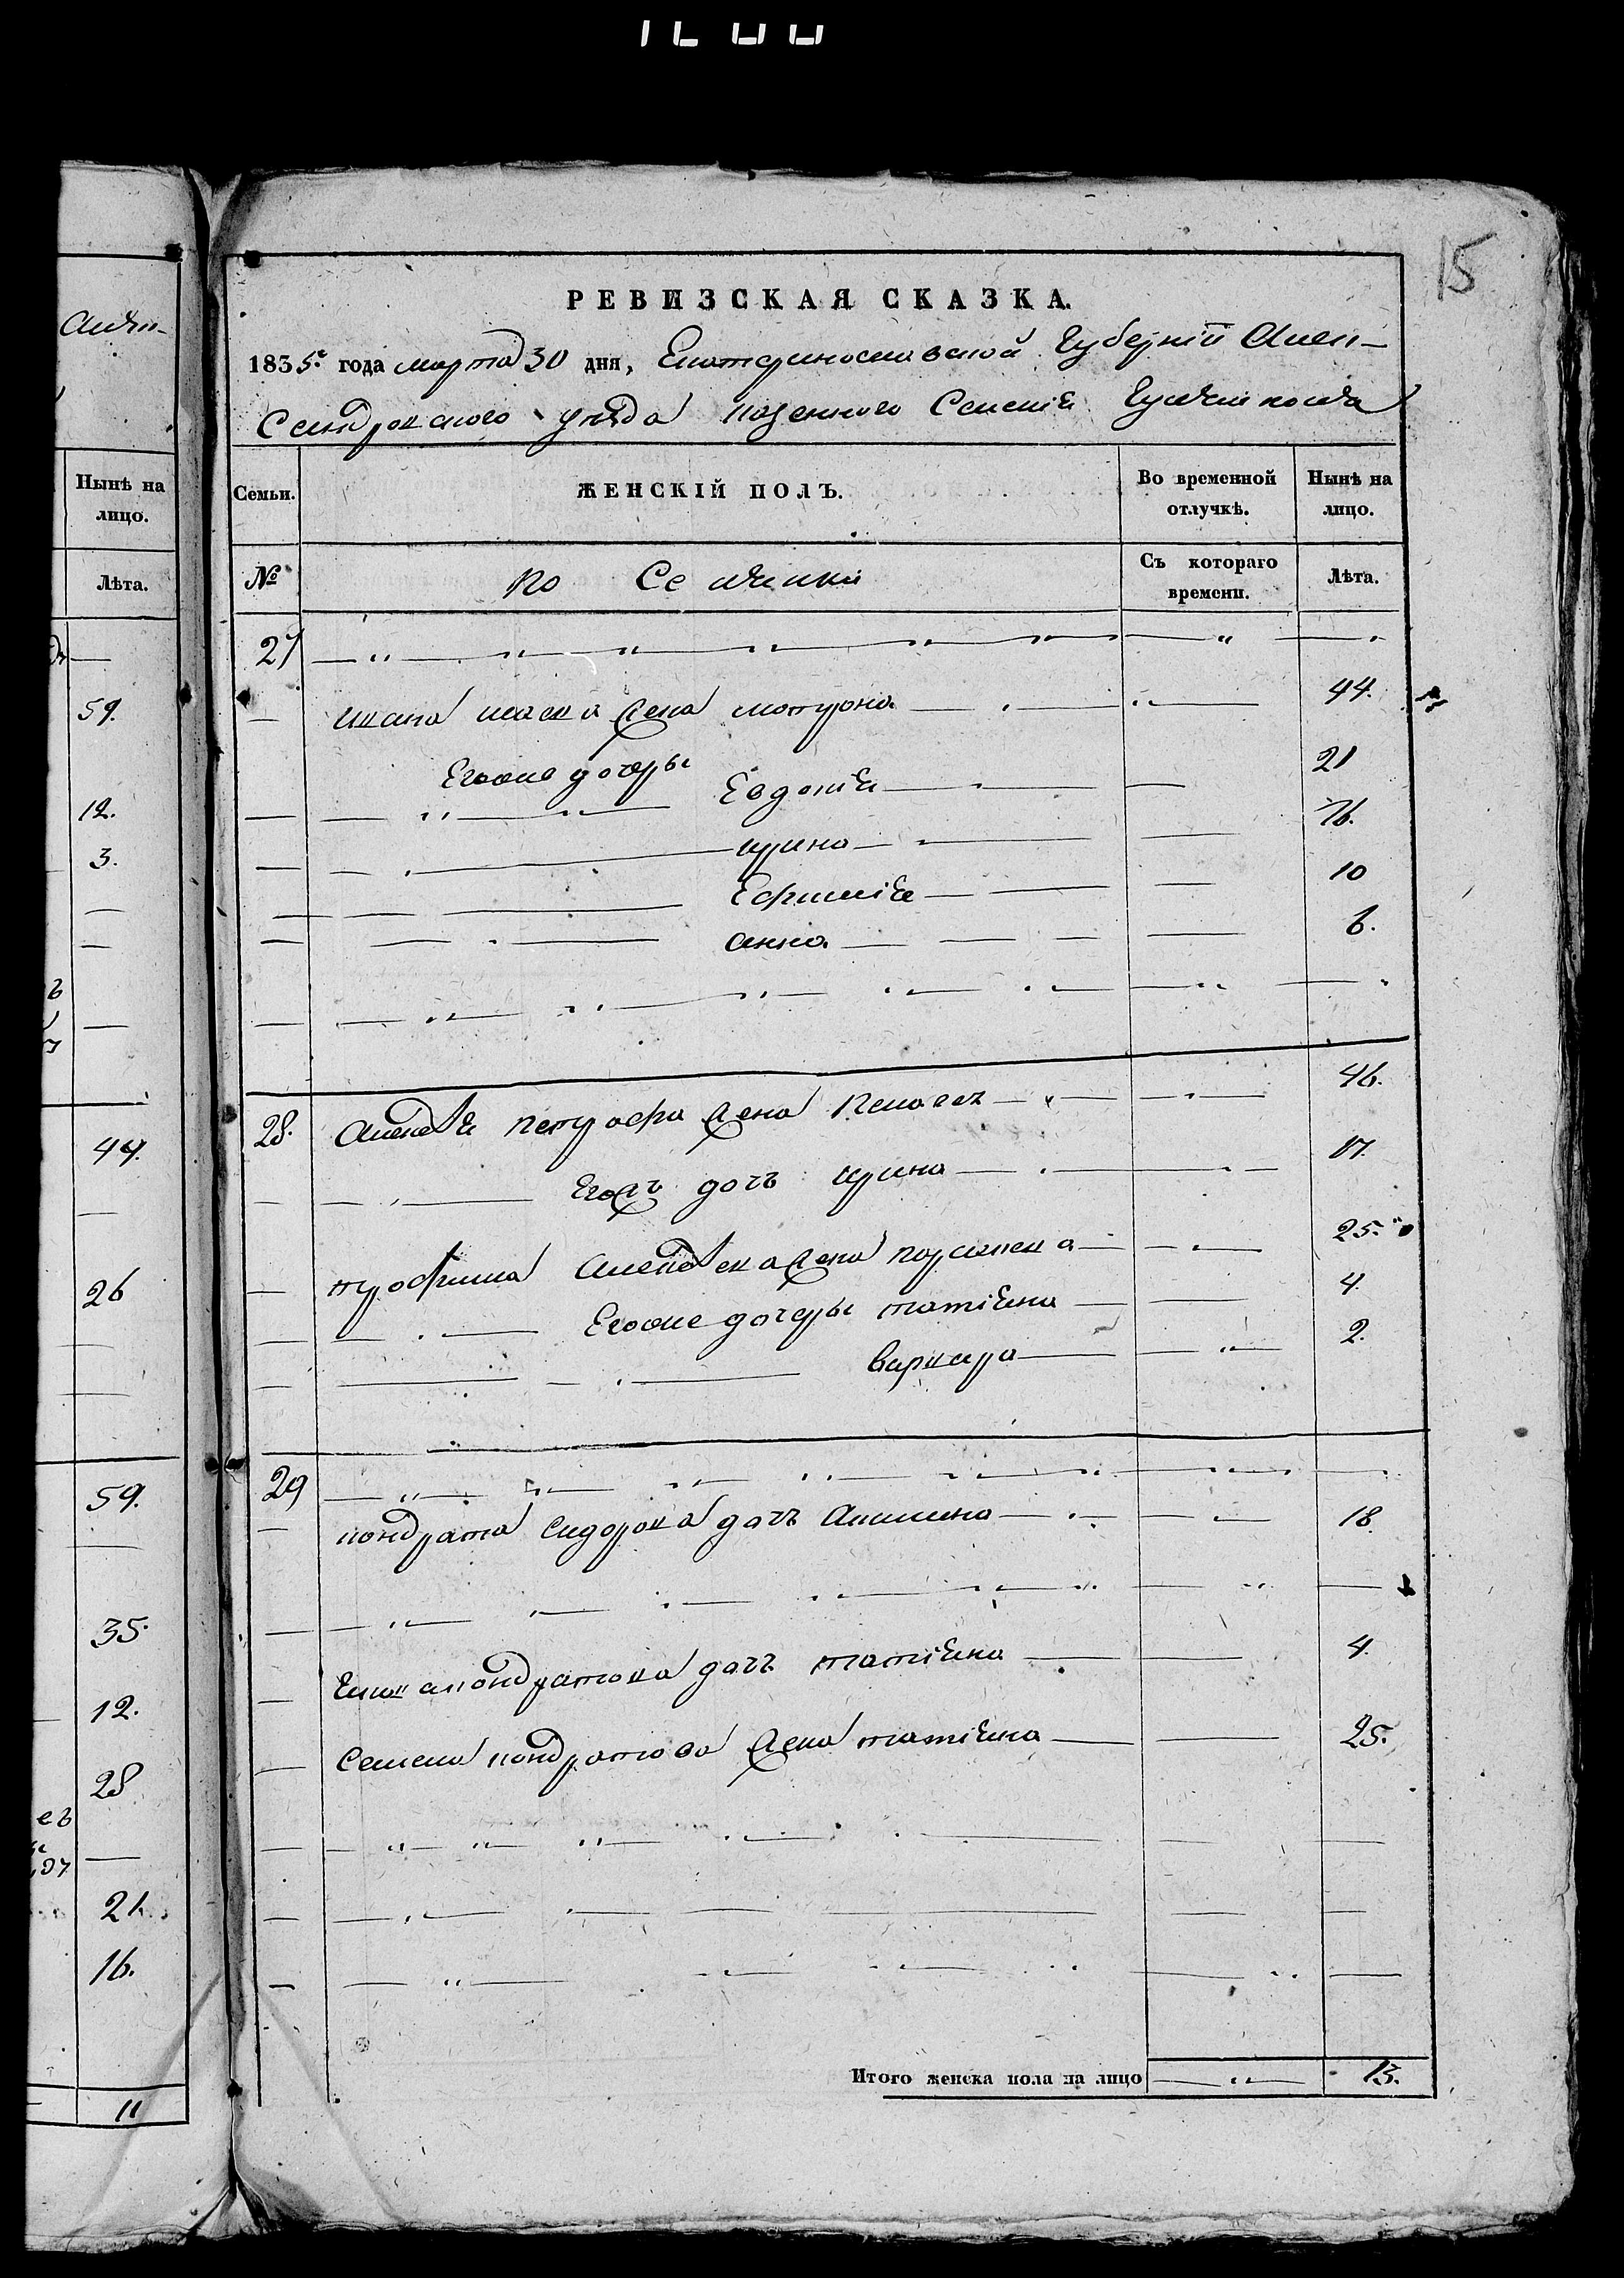 15
РЕВИЗСКАЯ СКАЗКА.
1835го года марта 30 дня, Екатеринославской Губернiи Алек-
Сандровского уезда казенного Селенiя
Семьи. ЖЕНСКІЙ ПОЛЪ. Во временной отлучкѣ. Нынѣ на лицо.
№ Съ котораго времени. Лѣта.
27
жена мотрона 44.
Егоже дочеры Евдокiя 21
ирина 16.
Ефимiя 10
анна 6.
28. Алексѣя петрова жена 46.
Егожъ дочъ ирина 17.
трофима Алексѣева жена параскева 25.
Егоже дочеры татiяна 4.
варвара 2.
29
кондрата Сидорова дочъ Акилина 18.
кондратова дочъ татiяна 4.
Семена кондратова жена татiяна 25.
Итого женска пола на лицо 13.
Нынѣ на
лицо.
Лѣта.
59.
12.
3.
44.
26
59.
35.
12.
28
21.
16.
11